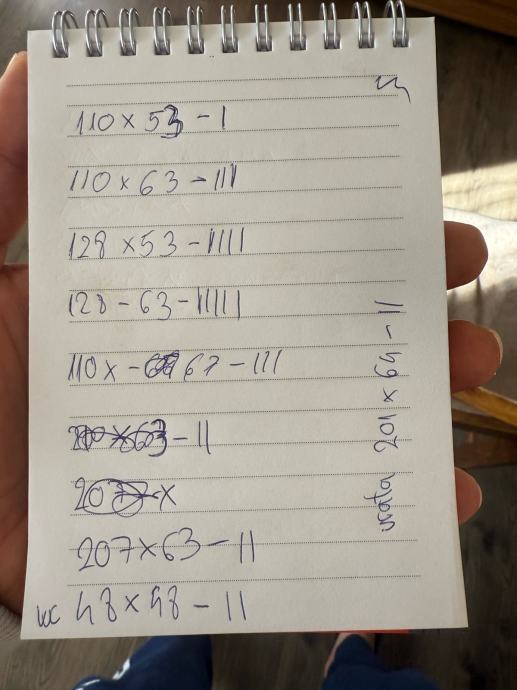 110 x 53 - I
110 x 63 - III
128 x 53 - IIII
128 - 63 - IIIII
110 x - 67 - III
- II
x
207 x 63 - II
WC 48 x 48 - II
201 x 64 - II